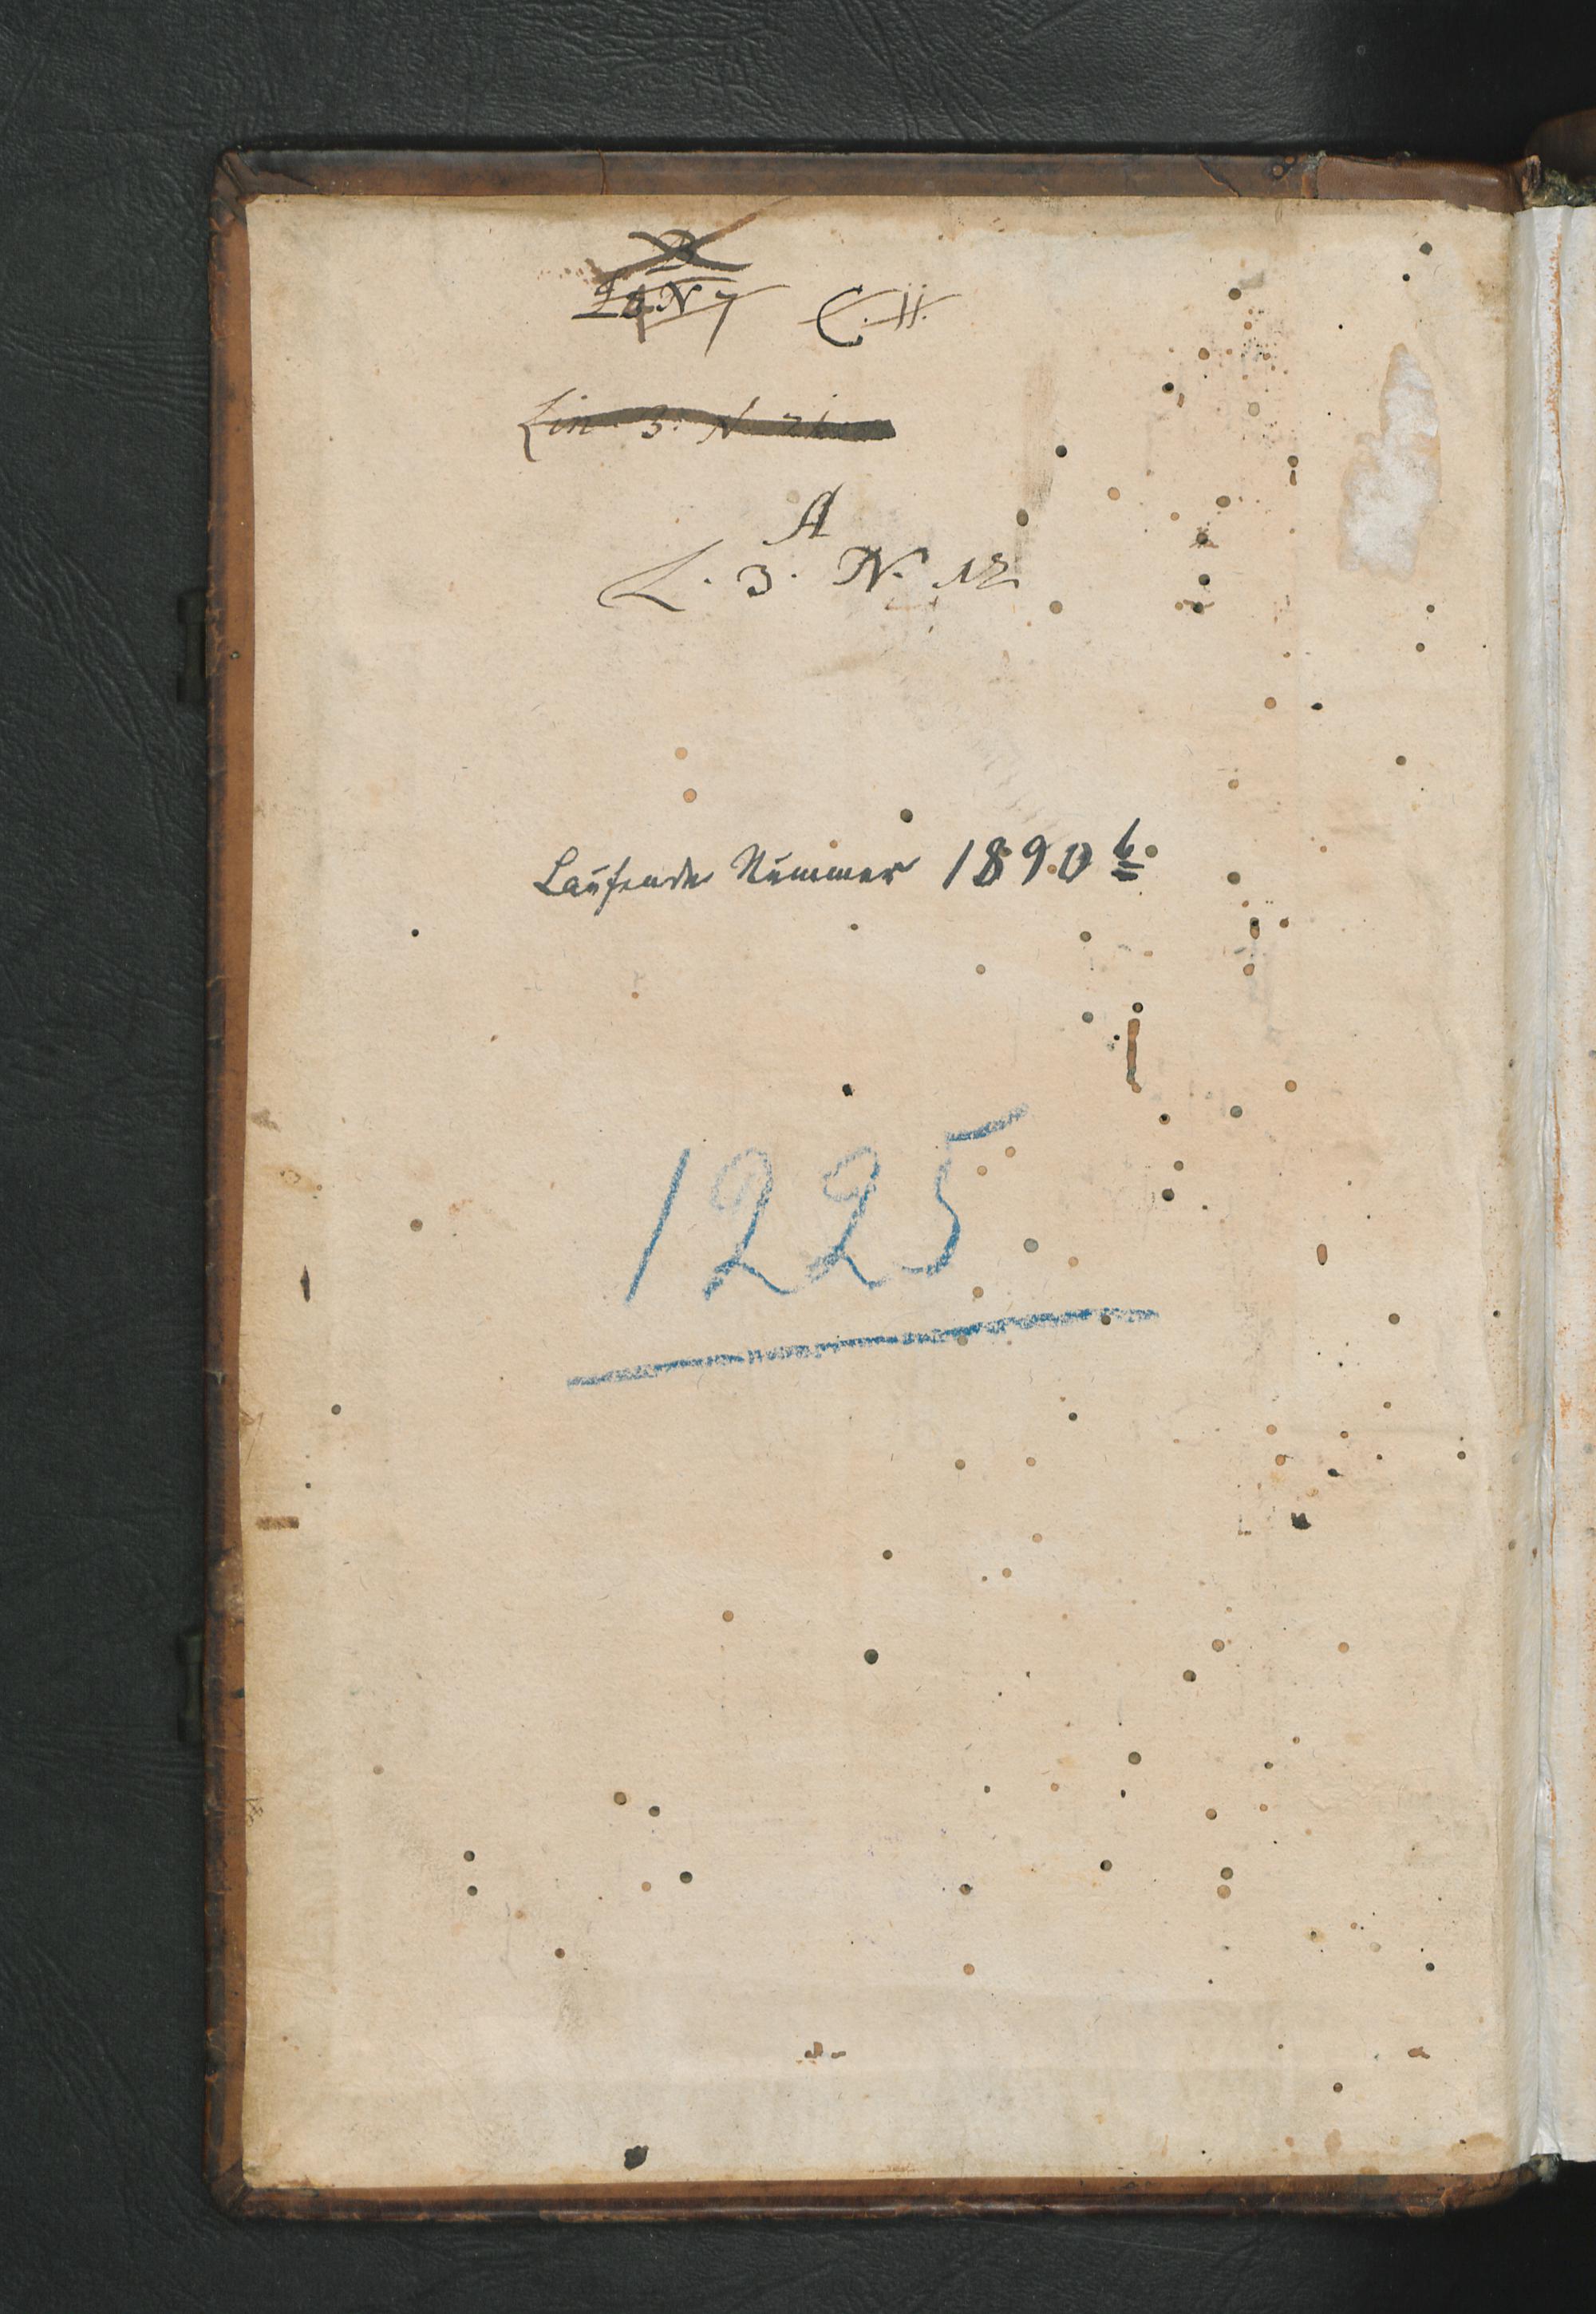 B
L 3 N 7 C. jj.
Lin. 3. N.
A
L. 3. N. 12
Laufende Nummer 1890 b.
1225